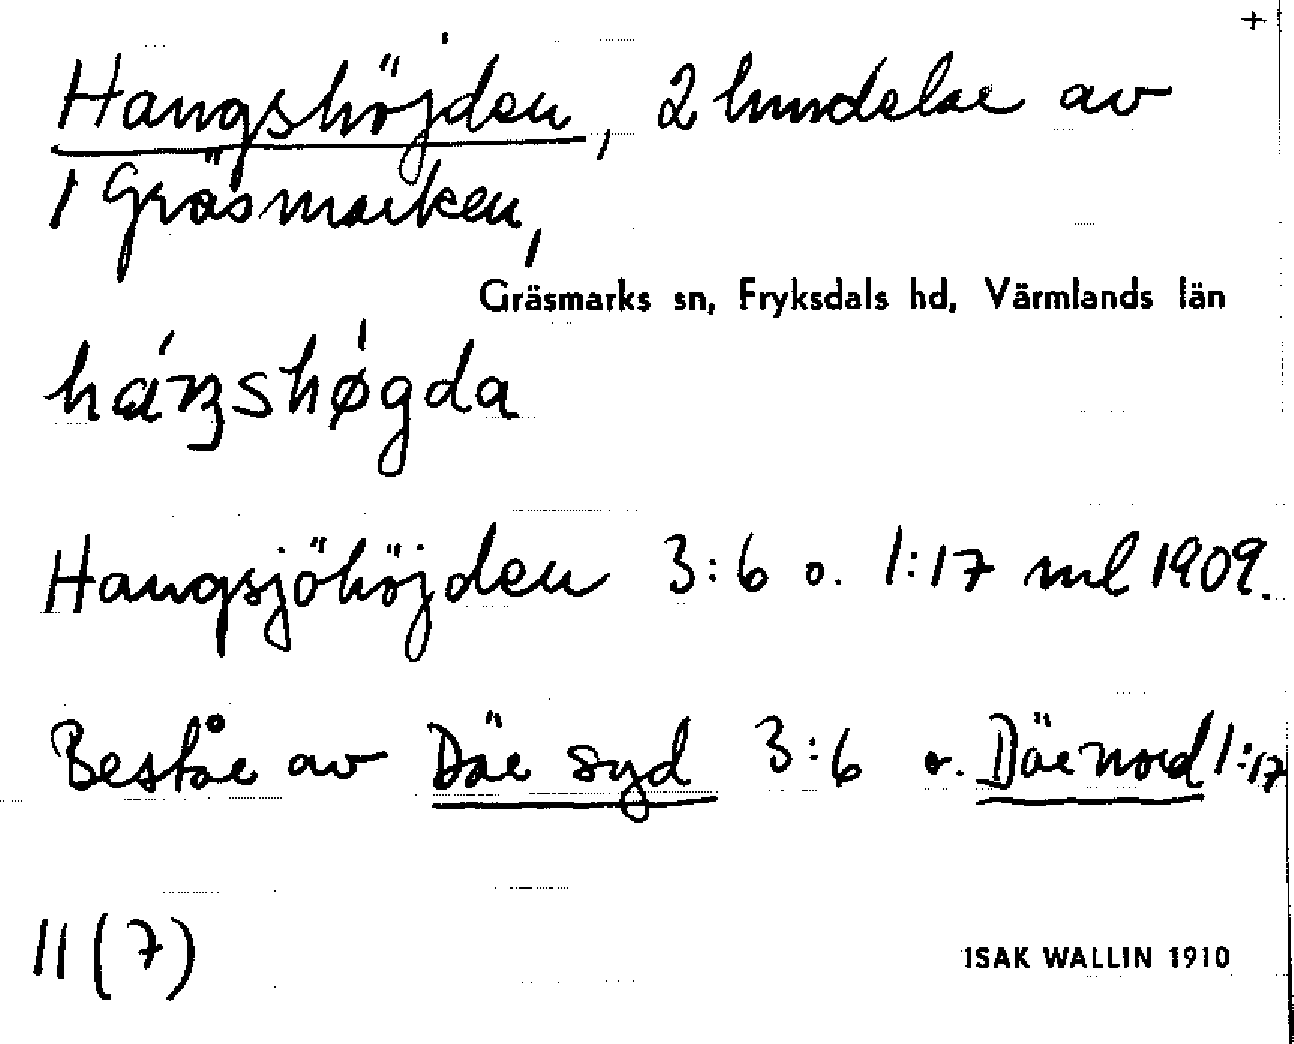 +
Hangshöjden, 2 hmdelar av
1 Gräsmarken,
Gräsmarks sn, Fryksdals hd, Värmlands län
háŋshø̍gda
Hangsjöhöjden 3:6 o. 1:17 ml 1909.
Består av Där syd 3:6 o. Där nord 1:17
11 (7)
ISAK WALLIN 1910